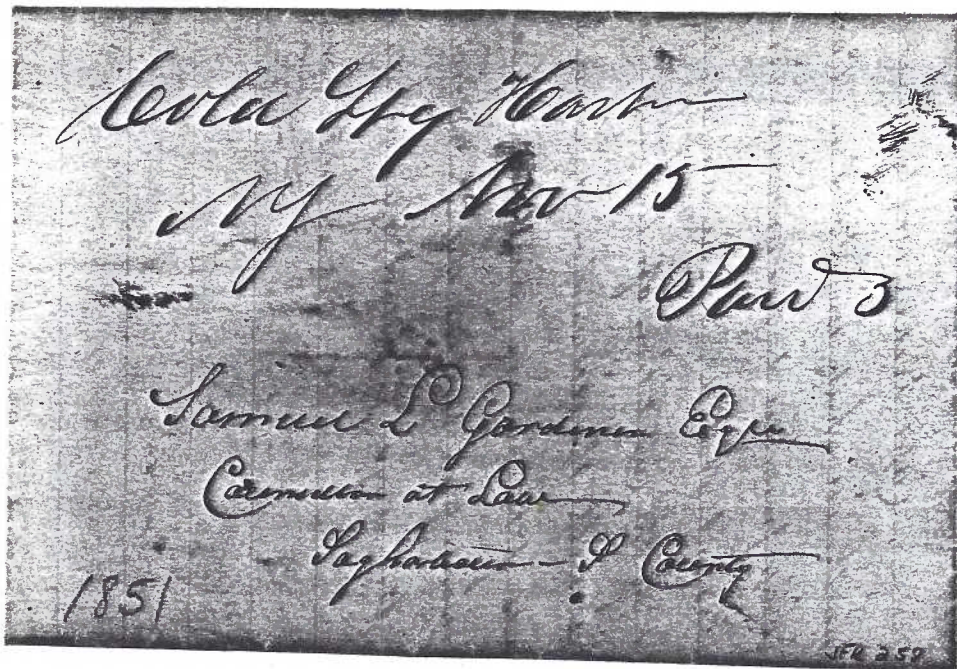 Cold Spg Harbr
NY Nov 15
Paid 3
Samuel L Gardiner Esqre
Counsellor at Law
Sagharbour - S County
1851
JER 250